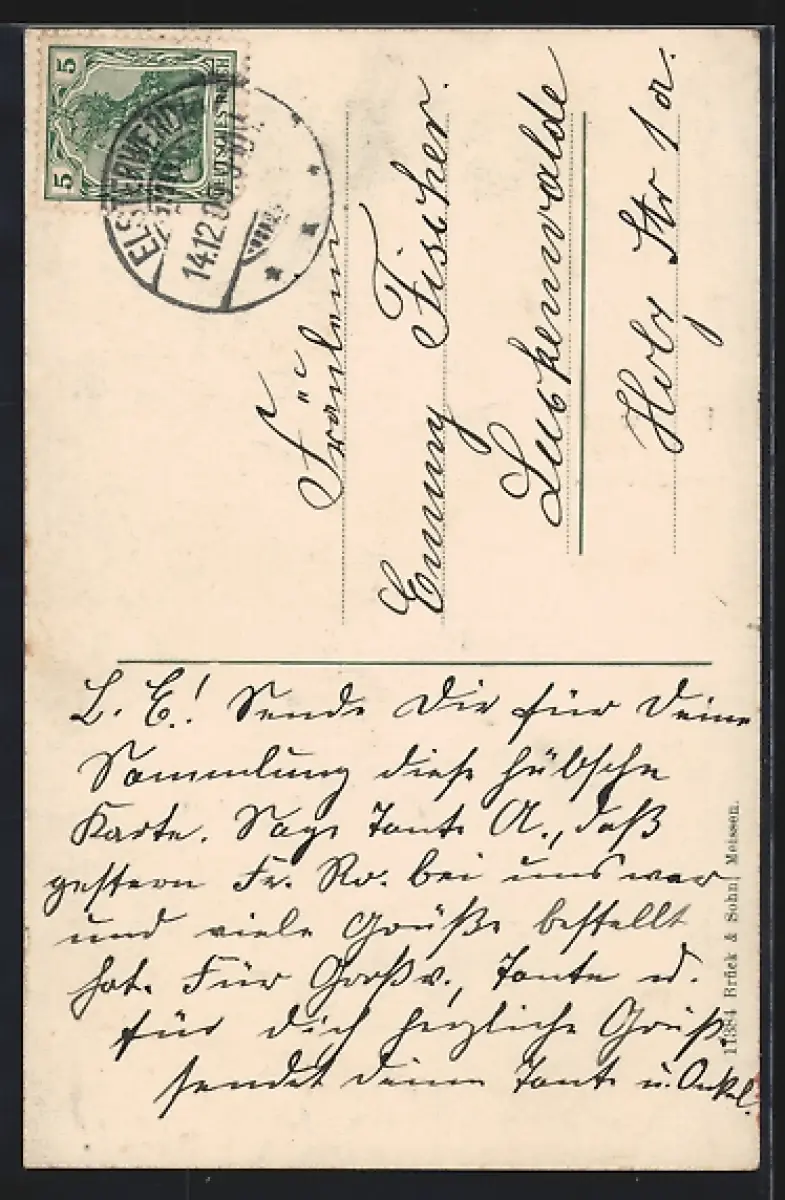 5
5
DEUTSCHES REICH
ELSTERWERDA
14.12.0
Fräulein
Emmy Fischer.
Luckenwalde
Holz Str 1a.
L. E.! Sende Dir für Deine
Sammlung diese hübsche
Karte. Sage Tante A., daß
gestern Fr. Ro. bei uns war
und viele Grüße bestellt
hat. Für Großv., Tante u.
für Dich herzliche Grüße
sendet deine Tante u. Onkel.
11384 Brück & Sohn, Meissen.